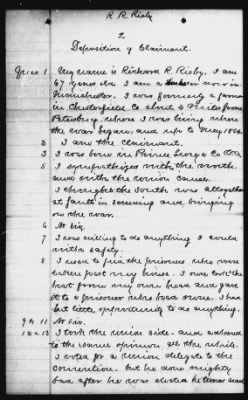 R. R. Risby
2
Deposition of Claimant.
Ques 1 My name is Richard R. Risby. I am
67 years old I am a now in
Manchester. I was formerly a farmer
in Chesterfield Co about 4 miles from
Petersburg, where I was living when
the war began, and up to May 1864.
2 I am the claimant.
3 I was born in Prince George Co Va.
5 I sympathized with the north
and with the union cause.
I thought the South was altogether
at fault in seceding and bringing
on the war.
6 No sir.
7 I was willing to do anything I could
with safety.
8 I used to feed the prisoners who were
taken past my house. I even took the
hat from my own head and gave
it to a prisoner who had none. I had
but little opportunity to do anything.
9 & 11 No sir.
12 & 13 I took the union side and adhered
to the same opinion all the while.
I voted for a union delegate to the
convention. but he done mighty
bad after he was elected he turned